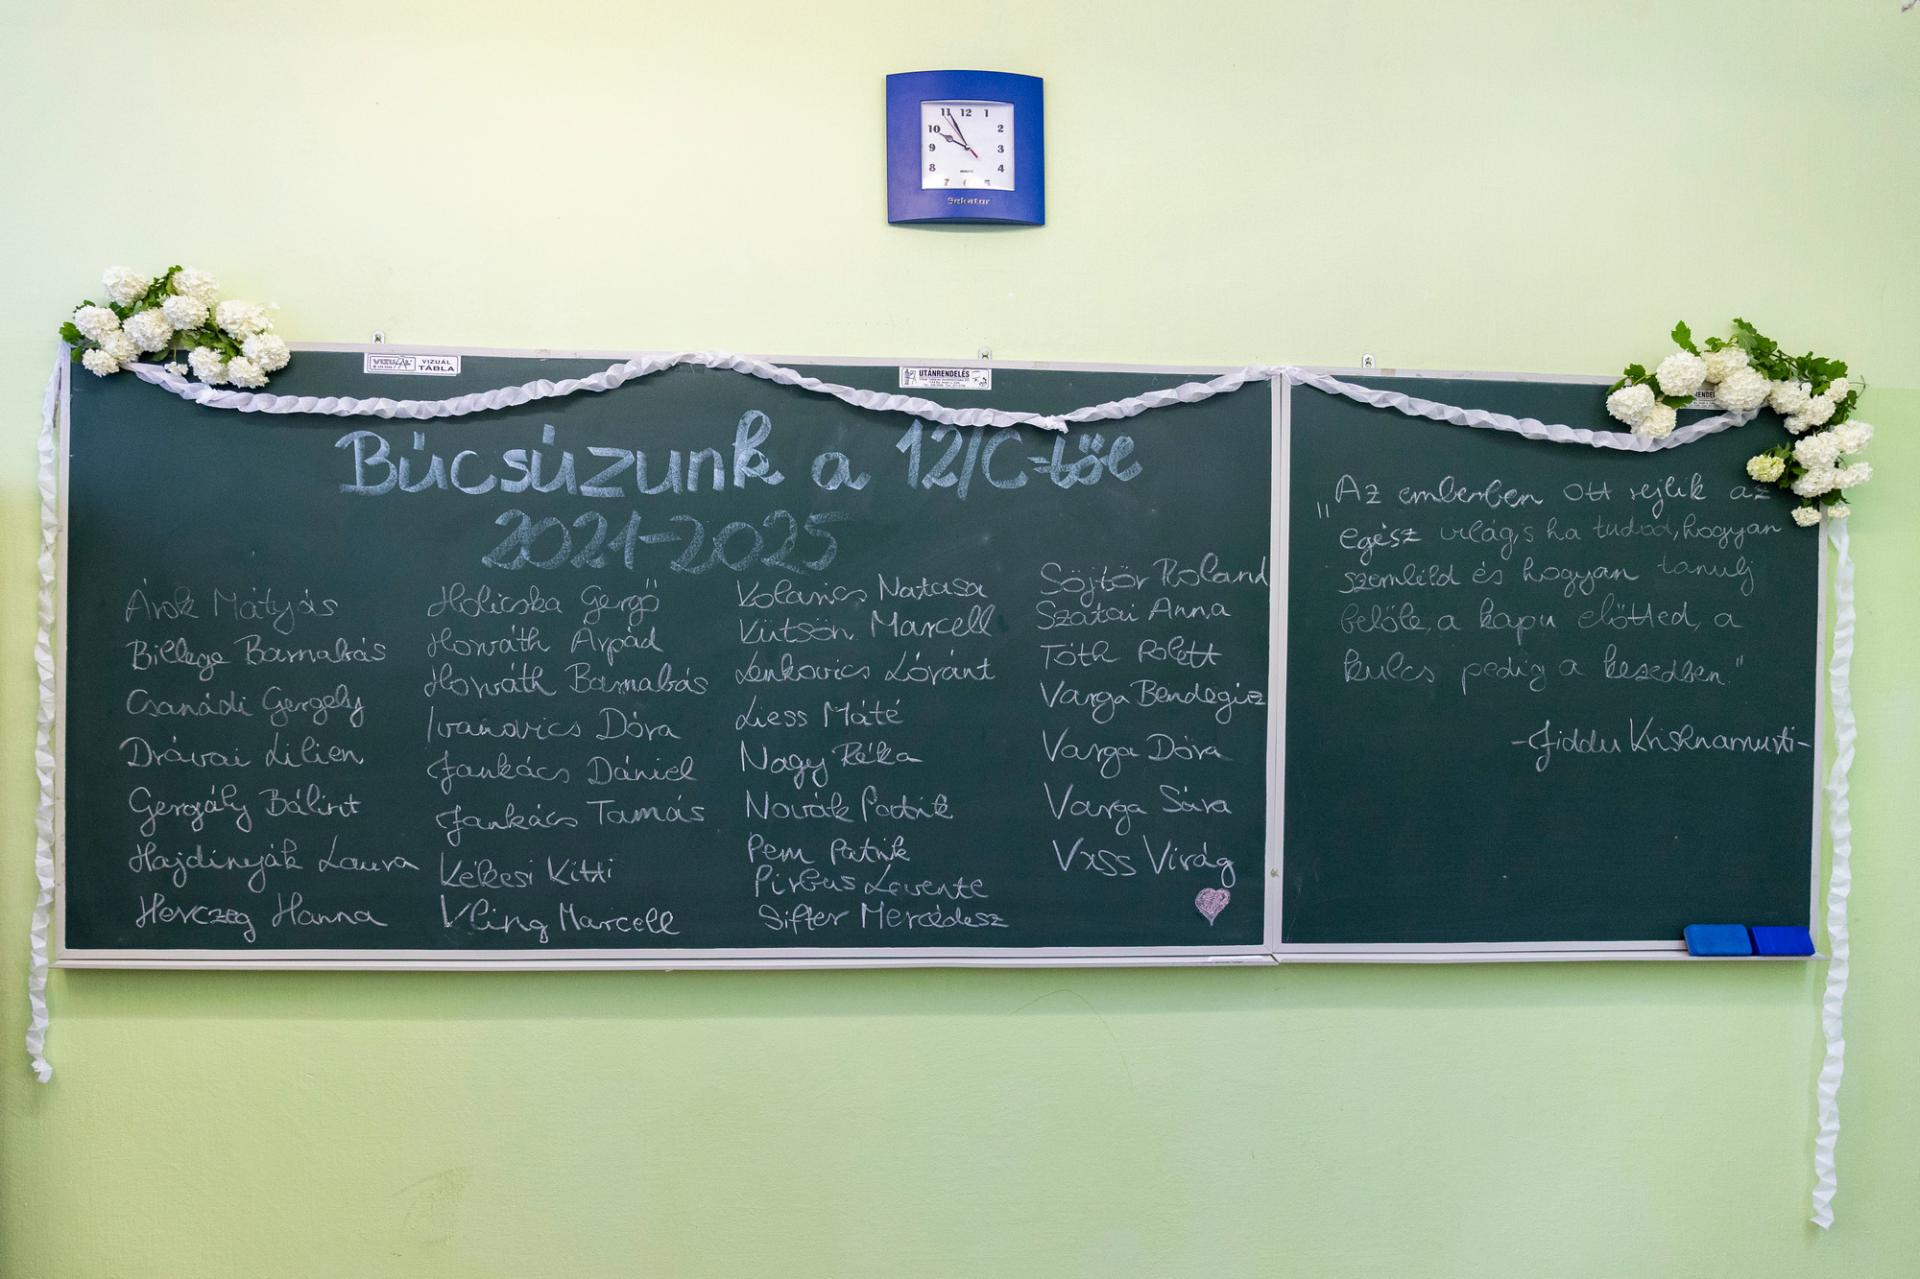 11 12 1
10 2
9 3
8 4
7 5
Sekstar
VIZUÁL
VIZUÁL TÁBLA
UTÁNRENDELÉS
Búcsúzunk a 12/C-től
2021-2025
Árok Mátyás
Billege Barnabás
Csanádi Gergely
Drávai Lilien
Gergály Bálint
Hajdinyák Laura
Herczeg Hanna
Holicska Gergő
Horváth Árpád
Horváth Barnabás
Ivanovics Dóra
Jankács Dániel
Jankács Tamás
Kékesi Kitti
Kling Marcell
Kolarics Natasa
Kütsön Marcell
Lenkovics Lóránt
Liess Máté
Nagy Réka
Novák Patrik
Pem Patrik
Pirbus Levente
Sifter Mercédesz
Söjtör Roland
Szátai Anna
Tóth Polett
Varga Bendegúz
Varga Dóra
Varga Sára
Vass Virág
„Az emberben ott rejlik az
egész világ, s ha tudod, hogyan
szemléld és hogyan tanulj
belőle, a kapu előtted, a
kulcs pedig a kezedben."
-Jiddu Krishnamurti-